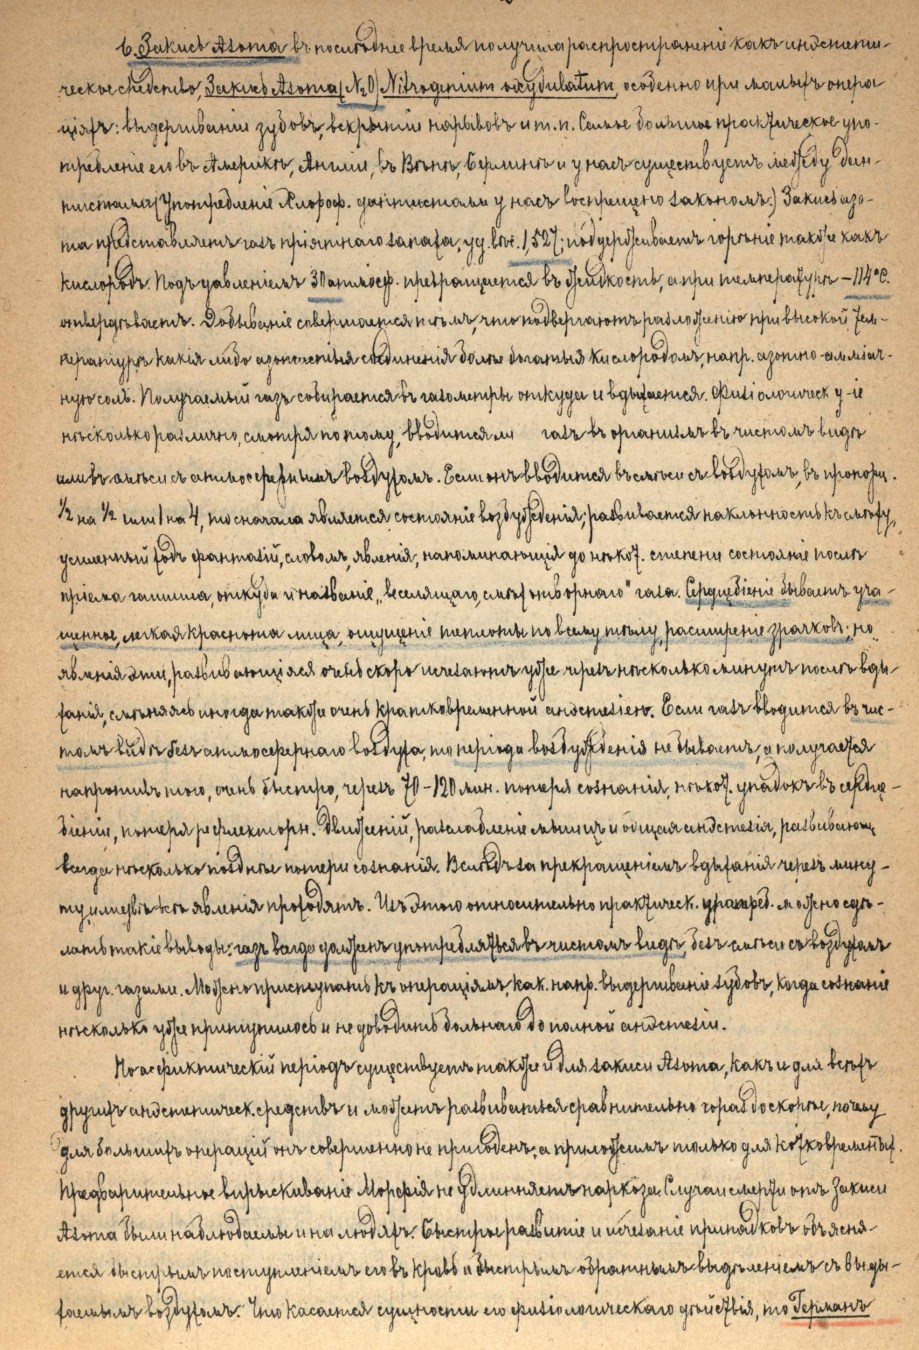 6. Закись Азота въ последнее время получила распространеніе какъ анэстети-
ческое средство, Закись Азота (N₂O) Nitrogenium oxydulatum, особенно при малыхъ опера-
ціяхъ: выдергиваніи зубовъ, вскрытіи нарывовъ и т. п. Самое большое практическое упо-
требленіе ея въ Америкѣ, Англіи, въ Вѣнѣ, Берлинѣ и у насъ существуетъ между дан-
тистами (Употребленіе Хлороф. дантистами у насъ воспрещено закономъ.) Закись азо-
та представляетъ газъ пріятнаго запаха, уд. вѣс. 1,527; поддерживаетъ горѣніе также какъ
кислородъ. Подъ давленіемъ 30 атмосф. превращается въ жидкость, а при температурѣ –114°C.
отвердѣваетъ. Добываніе совершается тѣмъ, что подвергаютъ разложенію при высокой тем-
пературѣ какія либо азотистыя соединенія болѣе богатыя кислородомъ, напр. азотно-амміач-
ную соль. Получаемый газъ собирается въ газометры откуда и вдыхается. Физіологическ у-іе
нѣсколько различно, смотря потому, вводится ли газъ въ организмъ въ чистомъ видѣ
или въ смѣси съ атмосфернымъ воздухомъ. Если онъ вводится въ смѣси съ воздухомъ, въ пропорц.
½ на ½ или 1 на 4, то сначала является состояніе возбужденія; развивается наклонность къ смѣху,
усиленный ходъ фантазій, словомъ, явленія, напоминающія до нѣкот. степени состояніе послѣ
пріема гашиша, откуда и названіе „веселящаго, смѣхотворнаго" газа. Сердцебіеніе бываетъ уча-
щенное, легкая краснота лица, ощущеніе теплоты по всему тѣлу, расширеніе зрачковъ; но
явленія эти, развивающіяся очень скоро исчезаютъ уже черезъ нѣсколько минутъ послѣ вды-
ханія, смѣняясь иногда также очень кратковременной анэстезіею. Если газъ вводится въ чис-
томъ видѣ безъ атмосфернаго воздуха, то періода возбужденія не бываетъ, а получается
напротивъ того, очень быстро, черезъ 70–120 мин. потеря сознанія, нѣкот. упадокъ въ сердце-
біеніи, потеря рефлекторн. движеній, разслабленіе мышцъ и общая анэстезія, развивающ.
всегда нѣсколько позднѣе потери сознанія. Вслѣдъ за прекращеніемъ вдыханія черезъ мину-
ту и меньше всѣ явленія проходятъ. Изъ этого относительно практическ. употреб. можно сдѣ-
лать такіе выводы: газъ всегда долженъ употребляться въ чистомъ видѣ, безъ смѣси съ воздухомъ
и друг. газами. Можно приступать къ операціямъ, как. напр. выдергиваніе зубовъ, когда сознаніе
нѣсколько уже притупилось и не доводить больнаго до полной анэстезіи.
Но асфиктическій періодъ существуетъ также и для закиси Азота, какъ и для всѣхъ
другихъ анэстетическ. средствъ и можетъ развиваться сравнительно гораздо скорѣе, почему
для большихъ операцій онъ совершенно не пригоденъ, а приложимъ только для кратковременных.
Предварительное впрыскиваніе Морфія не удлинняетъ наркоза. Случаи смерти отъ Закиси
Азота были наблюдаемы и на людяхъ. Быстрое развитіе и исчезаніе припадковъ объясня-
ется быстрымъ поступленіемъ его въ кровь и быстрымъ обратнымъ выдѣленіемъ съ выды-
хаемымъ воздухомъ. Что касается сущности его физіологическаго дѣйствія, то Германъ